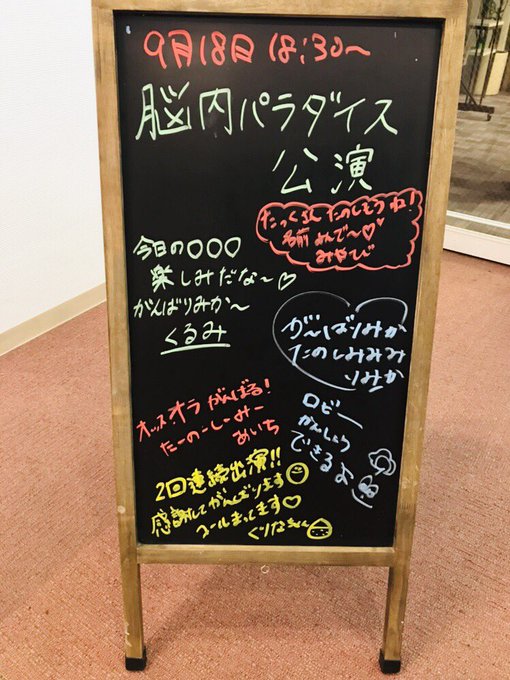 9月18日 18:30～
脳内パラダイス
公演
たっくさん たのしもうね！
名前 よんで～♡
みやび
今日の○○○
楽しみだな～♡
がんばりみか～
くるみ
が～ばりみか
たのしみみみ
りみか
オッス、オラ がんばる！
たーのーしーみー
めいち
ロビー
かんしょう
できるよ
2回連続出演!!
感謝してがんばります
コールまってます♡
くりなちゃん